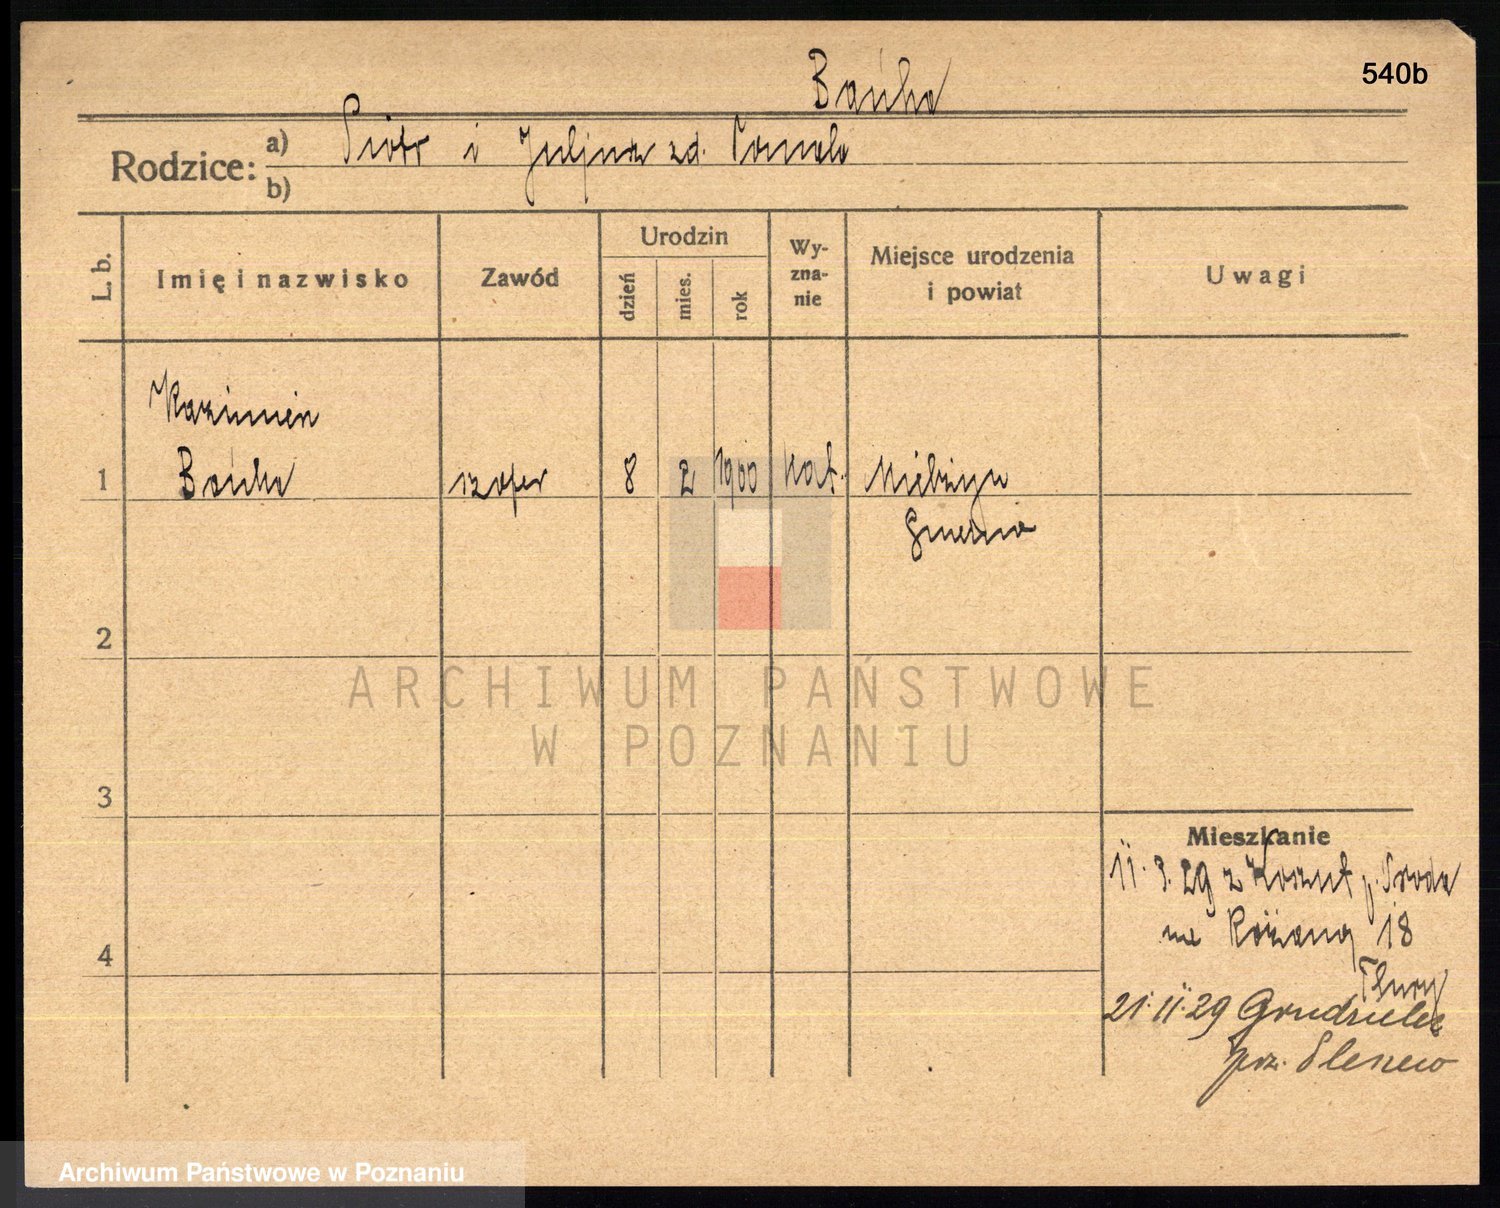 540b
Bańka
Rodzice:
a) Piotr i Juljna zd.
b)
L. b.
Imię i nazwisko
Zawód
Urodzin
dzień
mies.
rok
Wy-
zna-
nie
Miejsce urodzenia
i powiat
Uwagi
Kazimierz
1 Bańka szofer 8 2 1900 kat. Mielżyn
Gniezno
2
3
4
ARCHIWUM PAŃSTWOWE
W POZNANIU
Mieszkanie
11.3.29 z Koszut p. Środa
na Różaną 18
21.11.29 Grudzielec
Archiwum Państwowe w Poznaniu